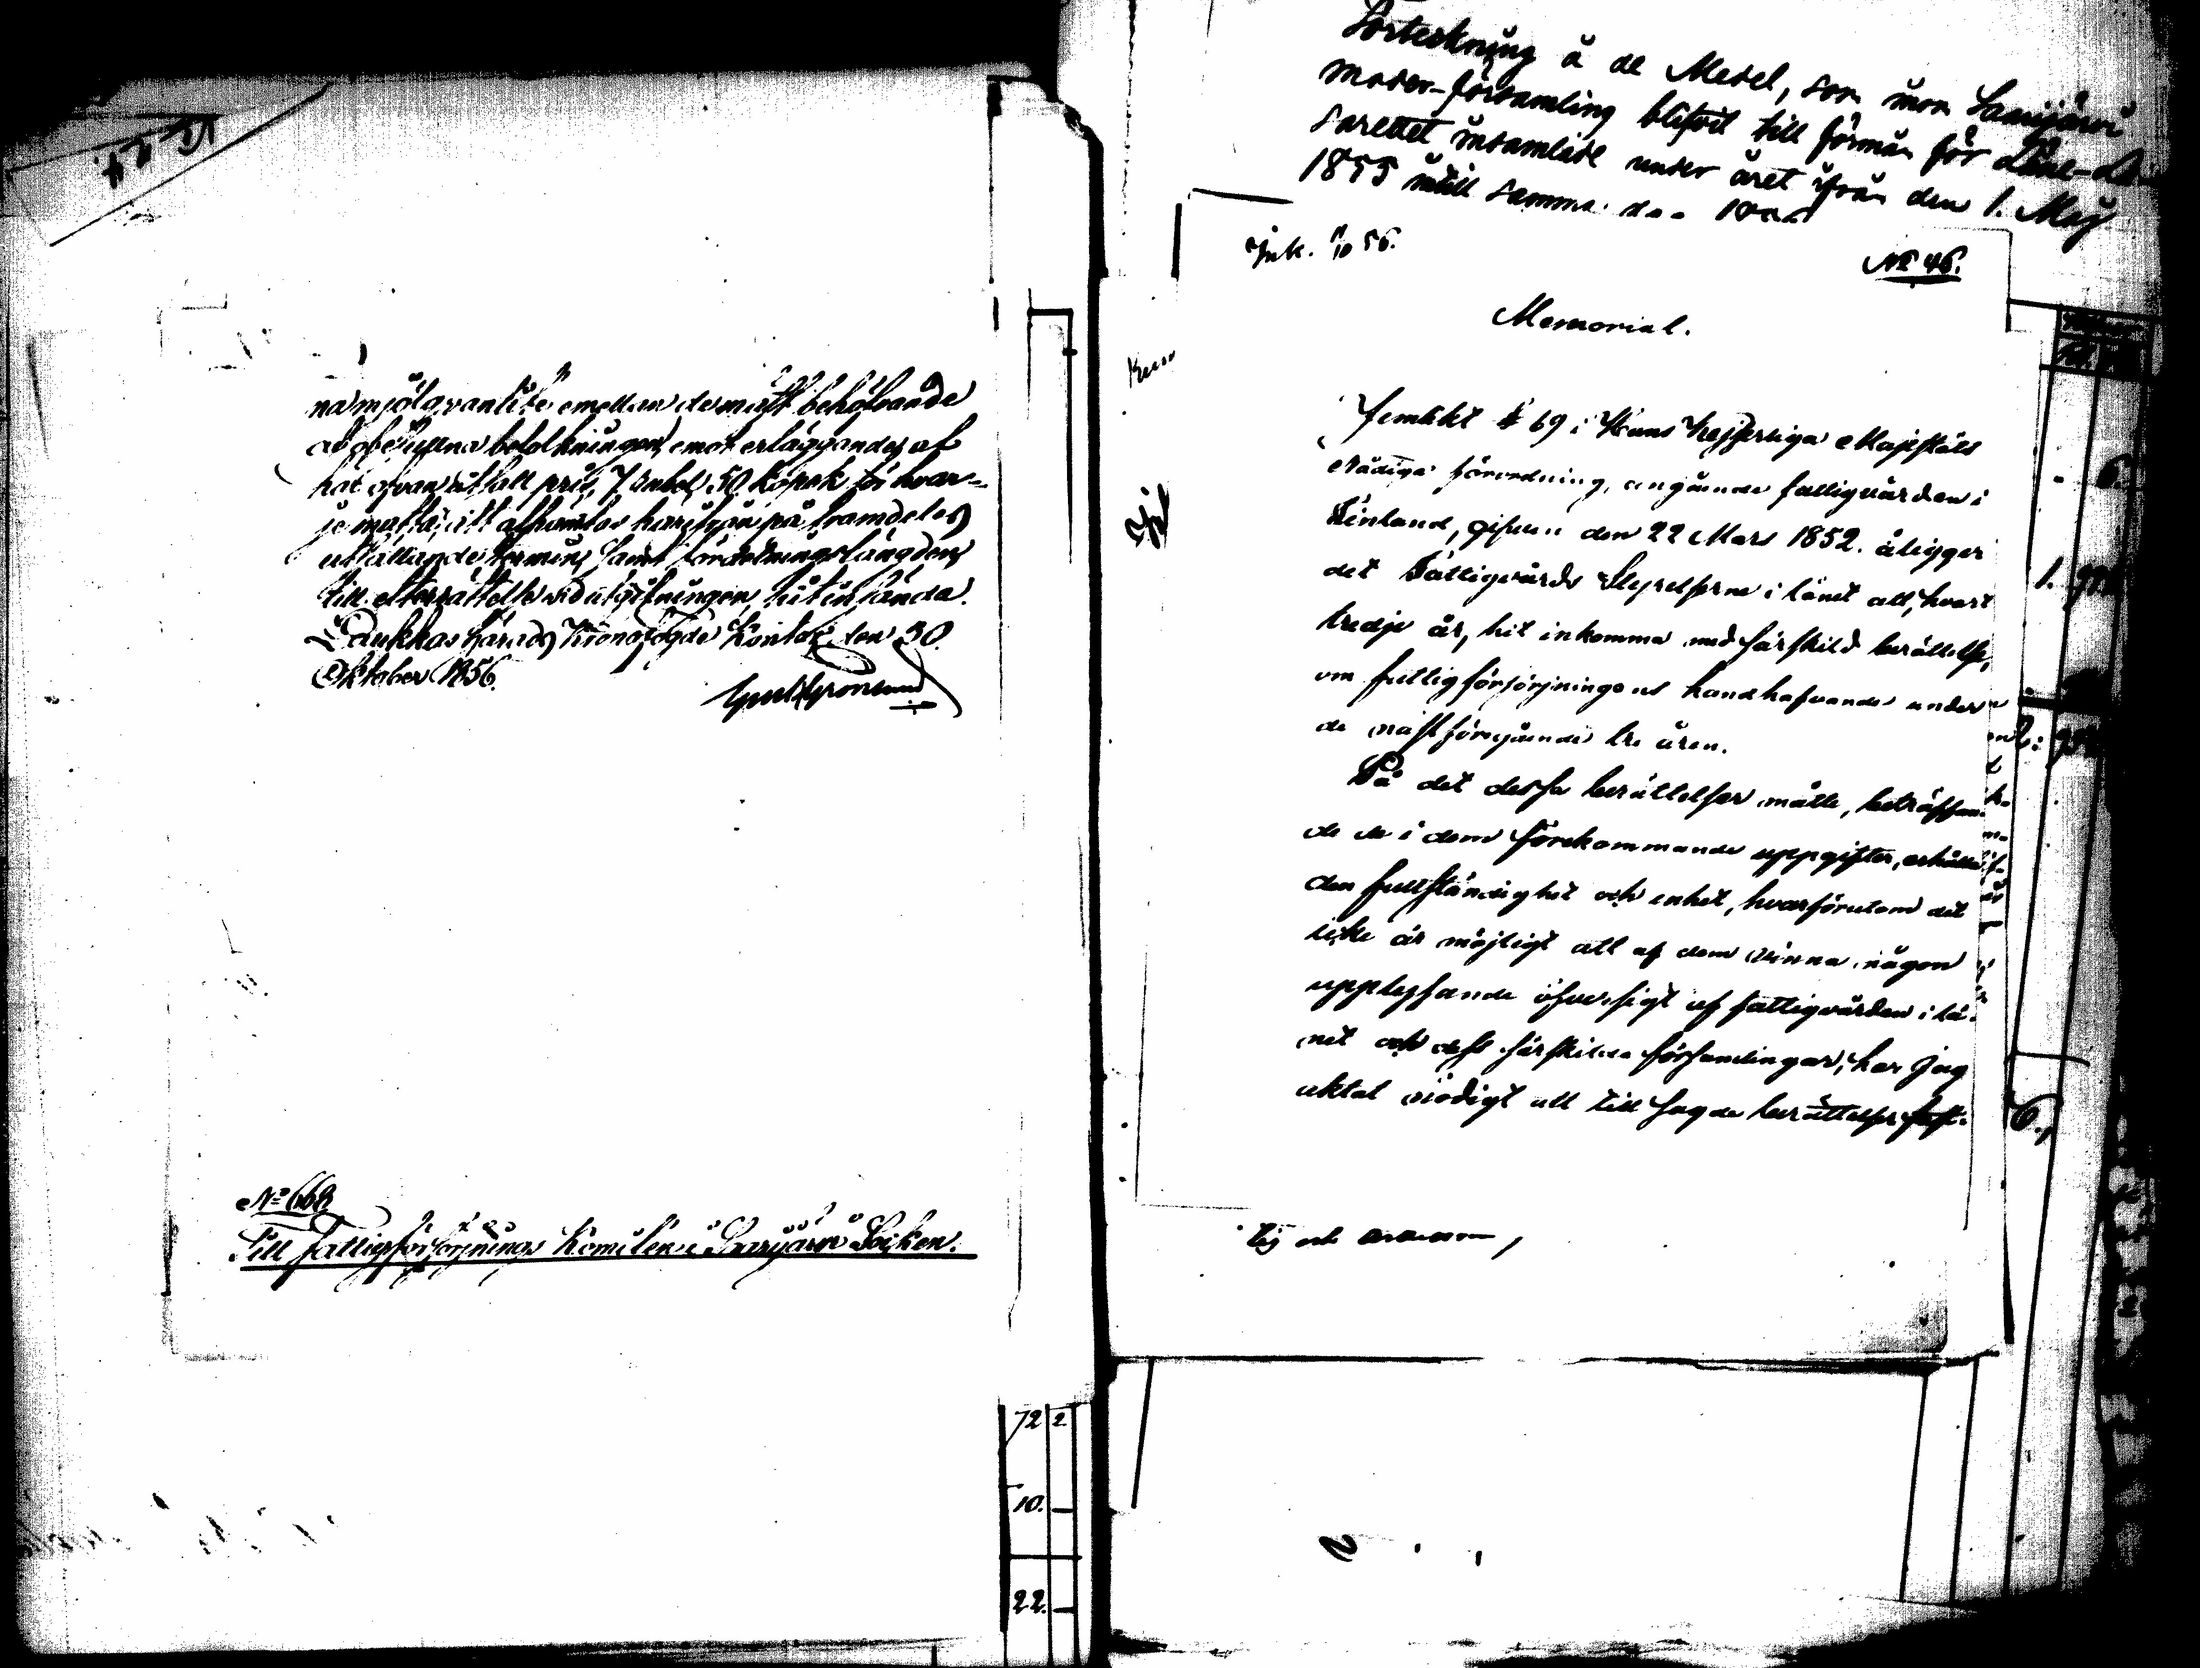 na mjölqvantité emellan de mäst behöfvande
befolkningen, emot erläggande af
pris, 7 Rubel 50 Kopek för hvar-
je matta, att afhämtas härifrån på framdeles
utsättande termin, samt fördelningslängden
till efterrättelse vid utgifningen, hit insända.
Laukkas härads Kronofogde Kontor, den 30.
Oktober 1856.
No 668.
Till Fattigförsörjnings Komitén i Saarijärvi Socken.
72 2
10. —
22. —
Förteckning å de Medel, som inom Saarijärvi
moder-församling blifvit till förmån för Läne-La-
sarettet insamlade under året ifrån den 1. Maj
1855 intill samma
Ink. 56.
No 46.
Memorial.
Jemlikt § 69 i Hans Kejserliga Majestäts
nådiga förordning, angående fattigvården i
Finland, gifven den 22 Mars 1852. åligger
det Fattigvårds Styrelserne i länet att, hvart
tredje år, hit inkomma med särskild berättelse,
om fattigförsörjningens handhafvande under
de nästföregående tre åren.
På det dessa berättelser måtte, beträffan-
de de i dem förekommande uppgifter, erhålla
den fullständighet och enhet, hvarförutom det
icke är möjligt att af dem vinna någon
upplysande öfversigt af fattigvården i lä-
net och dess särskilda församlingar, har jag
aktat nödigt att till sagde berättelser